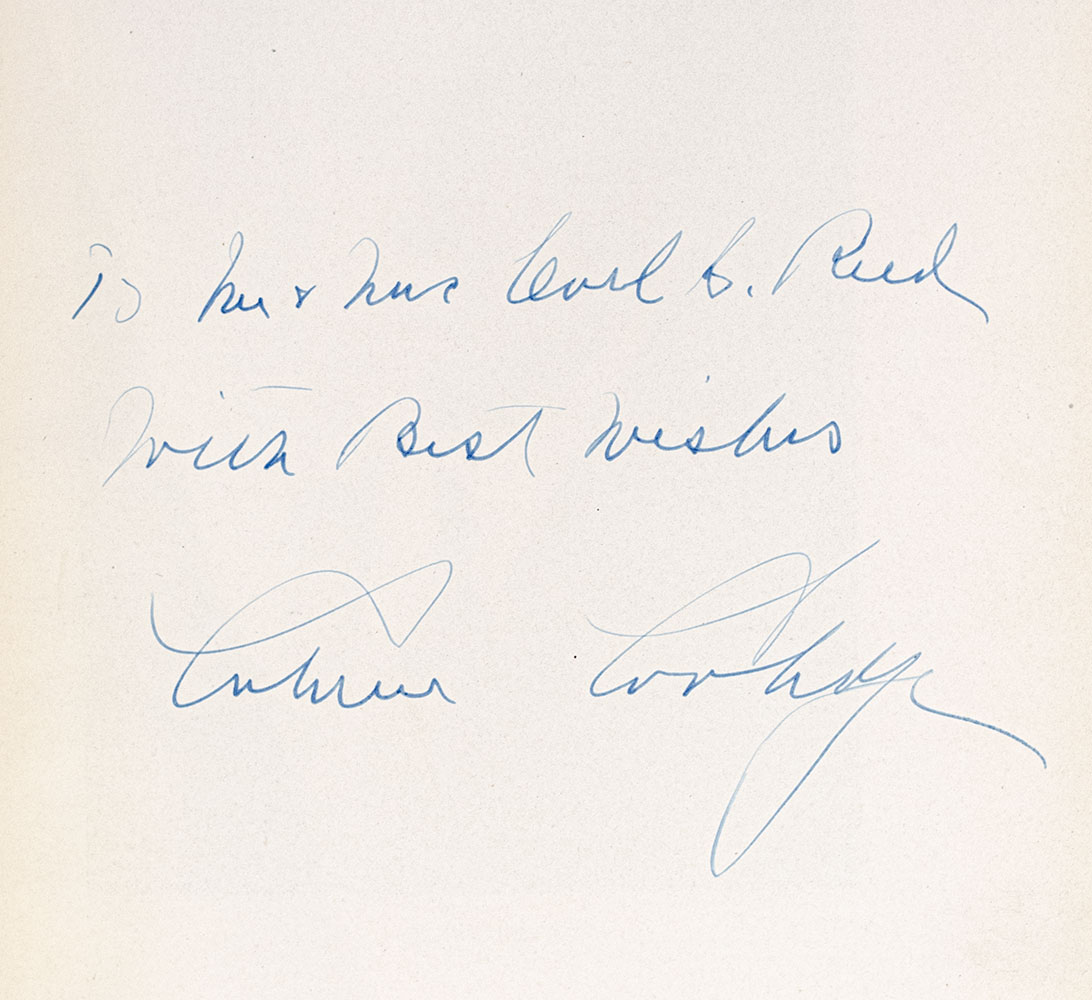 To Mr & Mrs Carl S. Reed
With Best Wishes
Calvin Coolidge